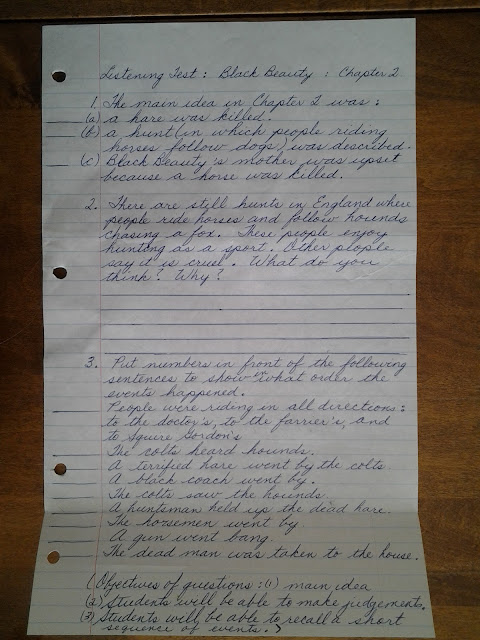 Listening Test : Black Beauty : Chapter 2
1. The main idea in Chapter 2 was :
(a) a hare was killed.
(b) a hunt (in which people riding
horses follow dogs) was described.
(c) Black Beauty's mother was upset
because a horse was killed.
2. There are still hunts in England where
people ride horses and follow hounds
chasing a fox. These people enjoy
hunting as a sport. Other people
say it is cruel. What do you
think? Why?
3. Put numbers in front of the following
sentences to show in what order the
events happened.
People were riding in all directions :
to the doctor's, to the farrier's, and
to Squire Gordon's
The colts heard hounds.
A terrified hare went by the colts.
A black coach went by.
The colts saw the hounds.
A huntsman held up the dead hare.
The horsemen went by.
A gun went bang.
The dead man was taken to the house.
(Objectives of questions : (1) main idea
(2) Students will be able to make judgements.
(3) Students will be able to recall a short
sequence of events.)